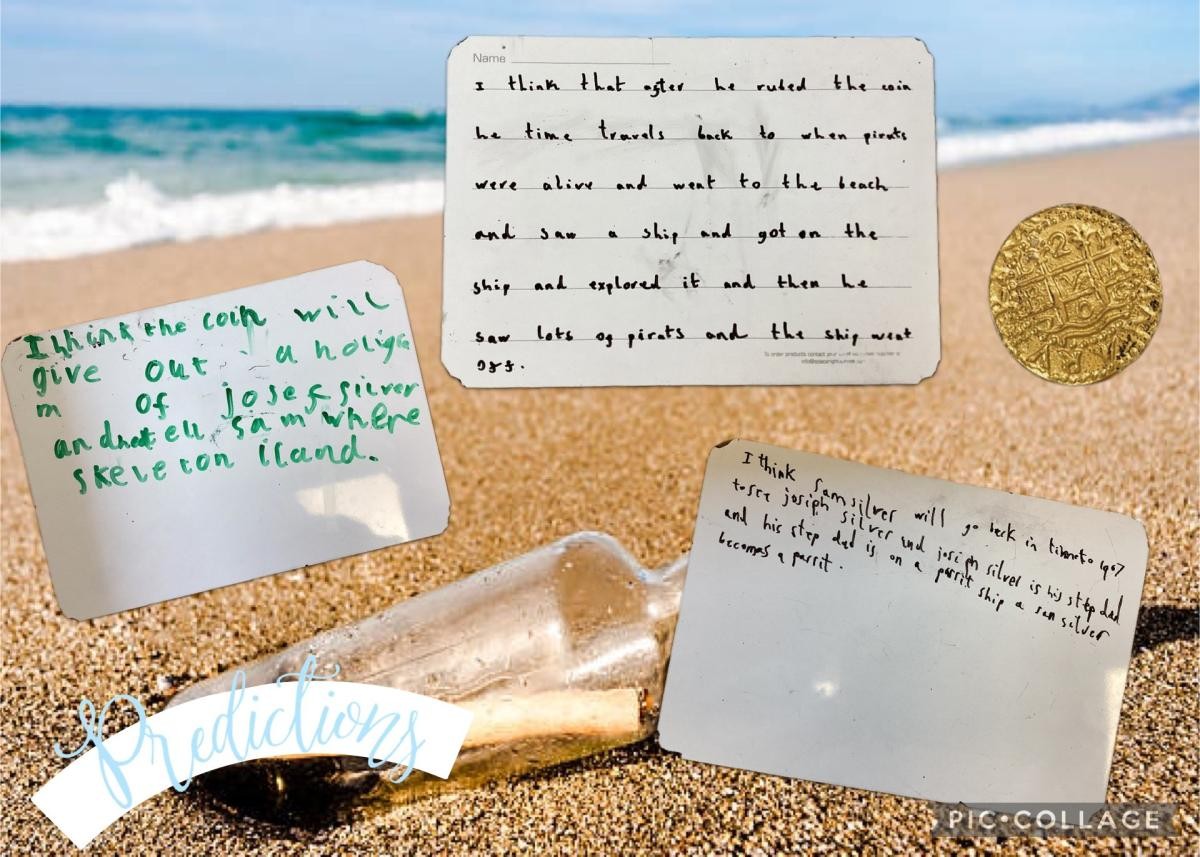 Name
I think that after he rubed the coin
he time travels back to when pirats
were alive and went to the beach
and saw a ship and got on the
ship and explored it and then he
saw lots of pirats and the ship went
off.
I think the coin will
give out a holigra
m of josef silver
and tell sam where
skeleton iland.
I think Sam silver will go back in time to 1967
to see joisiph silver and joisiph silver is his step dad
and his step dad is on a parrit ship a sam silver
becomes a parrit.
Predictions
PIC•COLLAGE